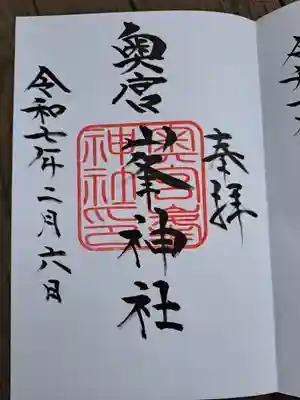 奉拝
奥宮峯神社
奥宮峯神社印
令和七年二月六日